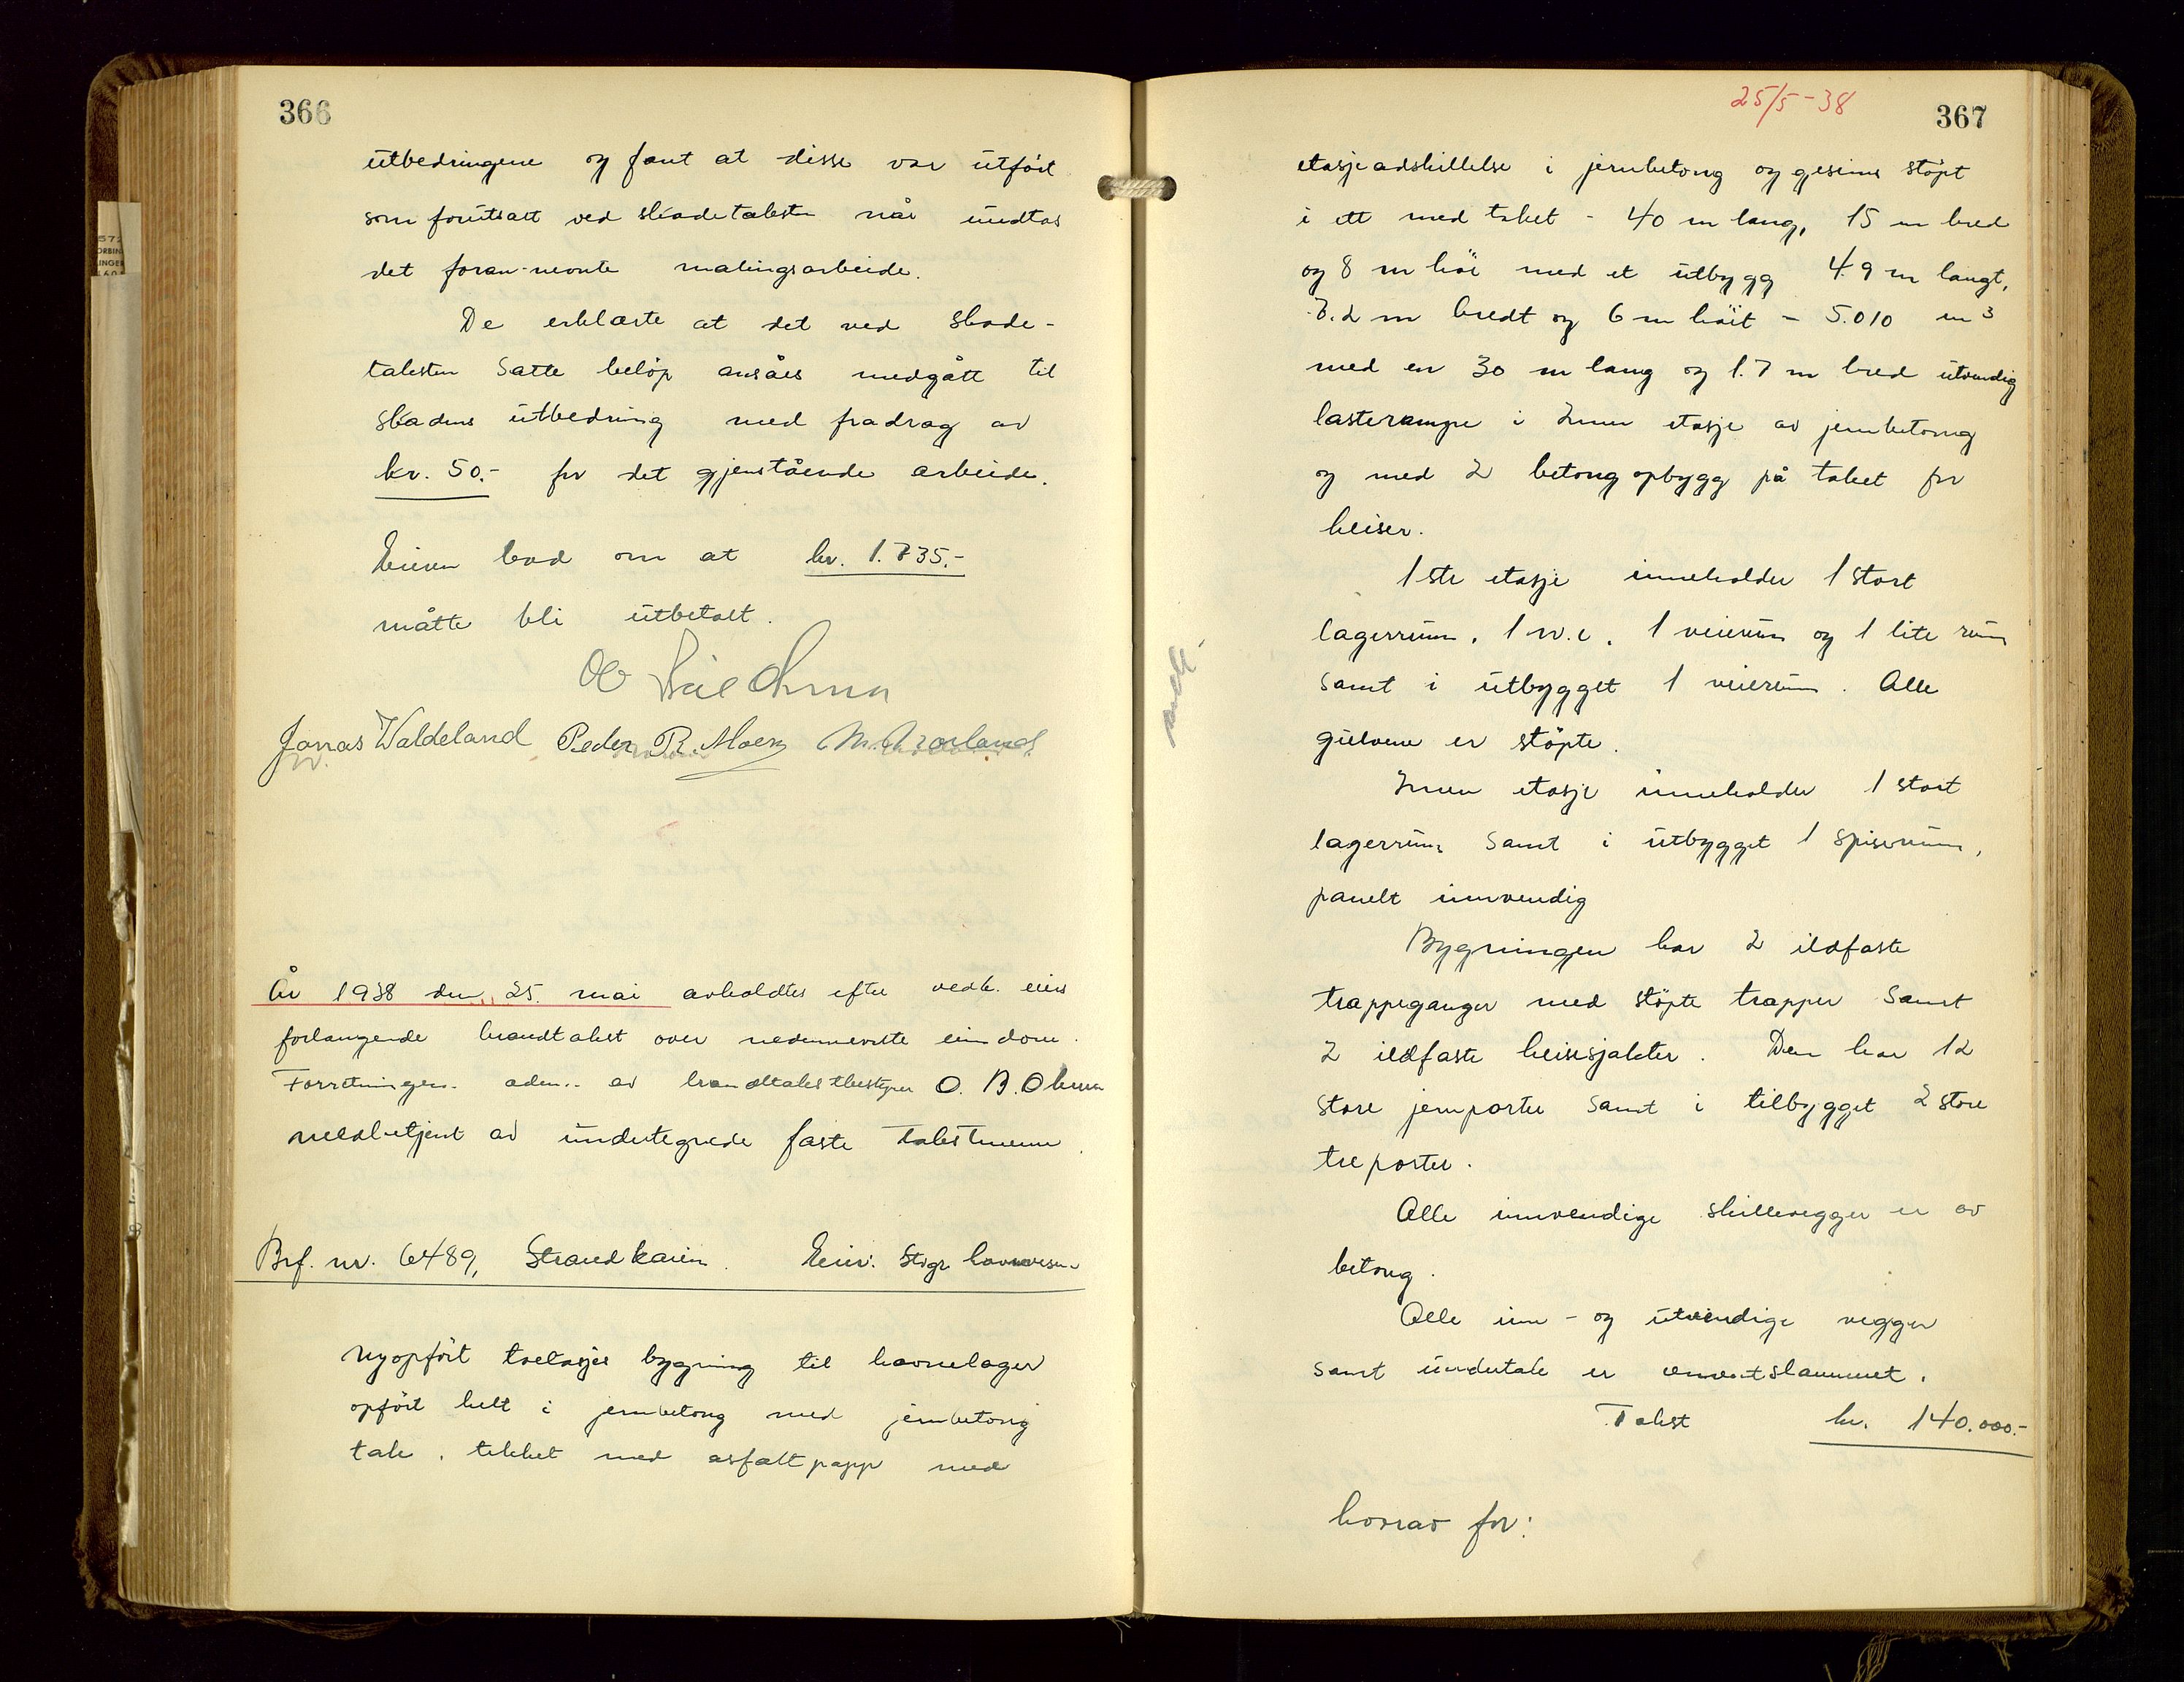 366
utbedringene og fant at disse var utført
som forutsatt ved skadetaksten når undtas
det foran-nevnte malingsarbeide.
De erklærte at det ved skade-
taksten satte beløp ansåes medgått til
skadens utbedring med fradrag av
kr. 50.- for det gjenstående arbeide.
Eieren bad om at kr. 1.735.-
måtte bli utbetalt.
Jonas Waldeland Peder R. Moen
År 1938 den 25. mai avholdtes efter vedk. eiers
forlangende brandtakst over nedennevnte eiendom.
Forretningen adm. av branntakstbestyrer O. B. Ohma
medbetjent av undertegnede faste takstmenn.
Brf. nr. 6489, Strandkaien. Eier: Stvgr havnevesen
Nyopført toetasjes bygning til havnelager
opført helt i jernbetong med jernbetong
tak, tekket med asfaltpapp med
25/5-38
367
etasjeadskillelse i jernbetong og gesims støpt
i ett med taket - 40 m lang, 15 m bred
og 8 m høi med et utbygg 4.9 m langt,
7.2 m bredt og 6 m høit - 5.010 m³
med en 30 m lang og 1.7 m bred utvendig
lasterampe i 2nnen etasje av jernbetong
og med 2 betongopbygg på taket for
heiser.
1ste etasje inneholder 1 stort
lagerrum, 1 w.c., 1 veierum og 1 lite rum
samt i utbygget 1 veierum. Alle
gulvene er støpte.
2nnen etasje inneholder 1 stort
lagerrum samt i utbygget 1 spiserum,
panelt innvendig
Bygningen har 2 ildfaste
trappeganger med støpte trapper samt
2 ildfaste heissjakter. Den har 12
store jernporter samt i tilbygget 2 store
treporter.
Alle innvendige skillevegger er av
betong.
Alle inn- og utvendige vegger
samt undertak er cementslammet.
Takst kr. 140.000.-
hvorav for: